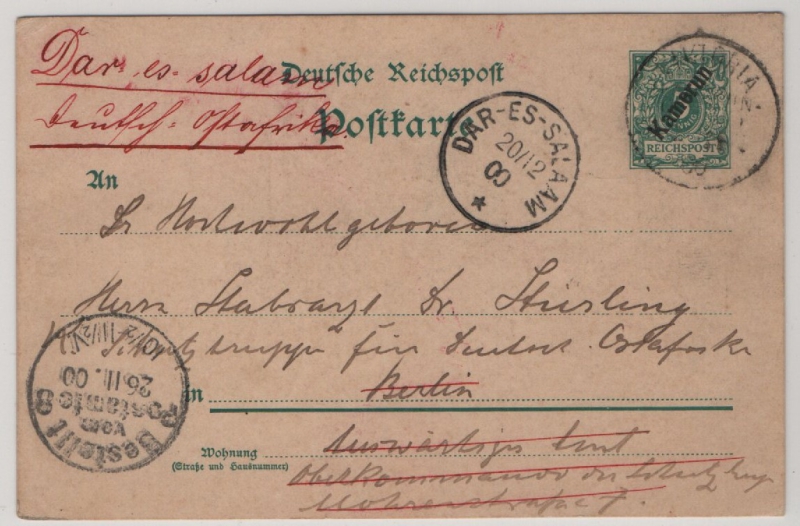 Dar es salaam
Deutsch-Ostafrika
Deutsche Reichspost
Postkarte
Kamerun
REICHSPOST
DAR-ES-SALAAM
20/12
00
*
An
Sr Hochwohlgeboren
Herrn Stabsarzt Dr.
Schutztruppe für Deutsch Ostafrika
in Berlin
Wohnung
(Straße und Hausnummer)
Auswärtiges Amt
Oberkommando der Schutztruppe
Mohrenstrasse
Bestellt
vom
Postamte 8
26.11.00